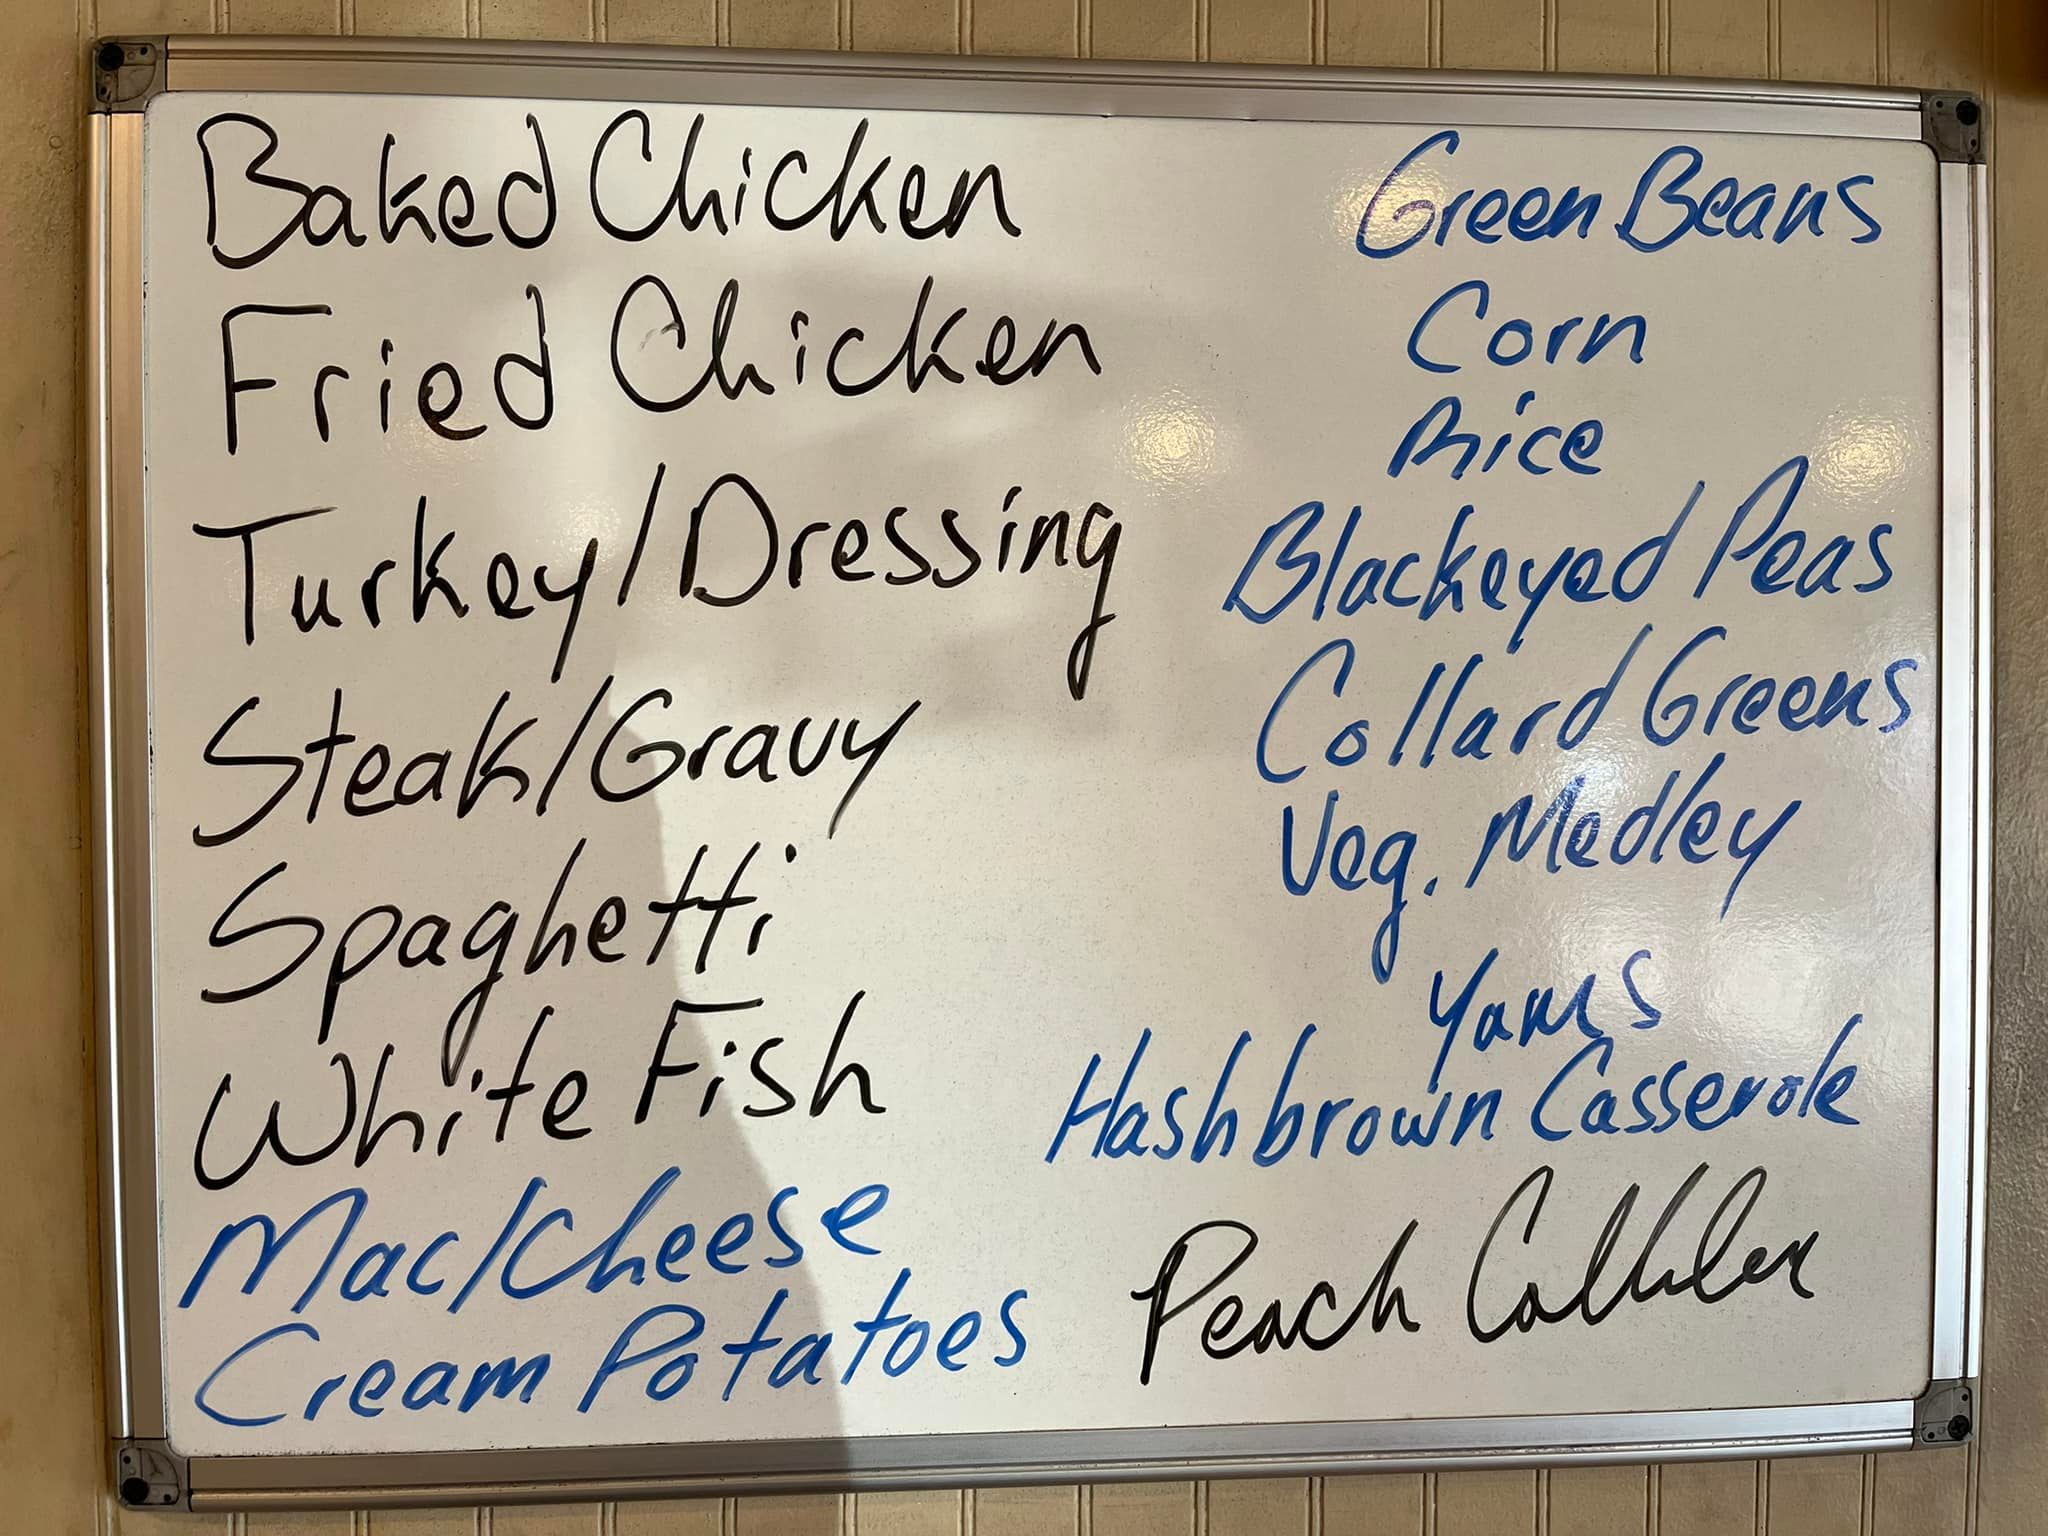 Baked Chicken
Fried Chicken
Turkey/Dressing
Steak/Gravy
Spaghetti
White Fish
Mac/Cheese
Cream Potatoes
Green Beans
Corn
Rice
Blackeyed Peas
Collard Greens
Veg. Medley
Yams
Hashbrown Casserole
Peach Cobbler